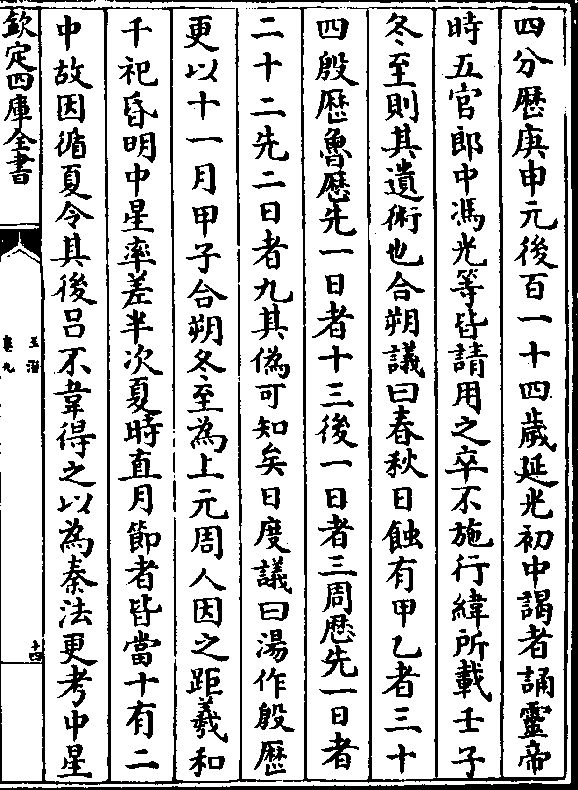 四分歴庚申元後百一十四歲延光初中謁者誦靈帝
時五官郎中馮光等皆請用之卒不施行緯所載壬子
冬至則其遺術也合朔議曰春秋日蝕有甲乙者三十
四殷歴魯歴先一日者十三後一日者三周歴先一日者
二十二先二日者九其偽可知矣日度議曰湯作殷歴
更以十一月甲子合朔冬至為上元周人因之距羲和
千祀昏明中星率差半次夏時直月節者皆當十有二
中故因循夏令其後呂不韋得之以為秦法更考中星
欽定四庫全書
玉海
卷九
十四